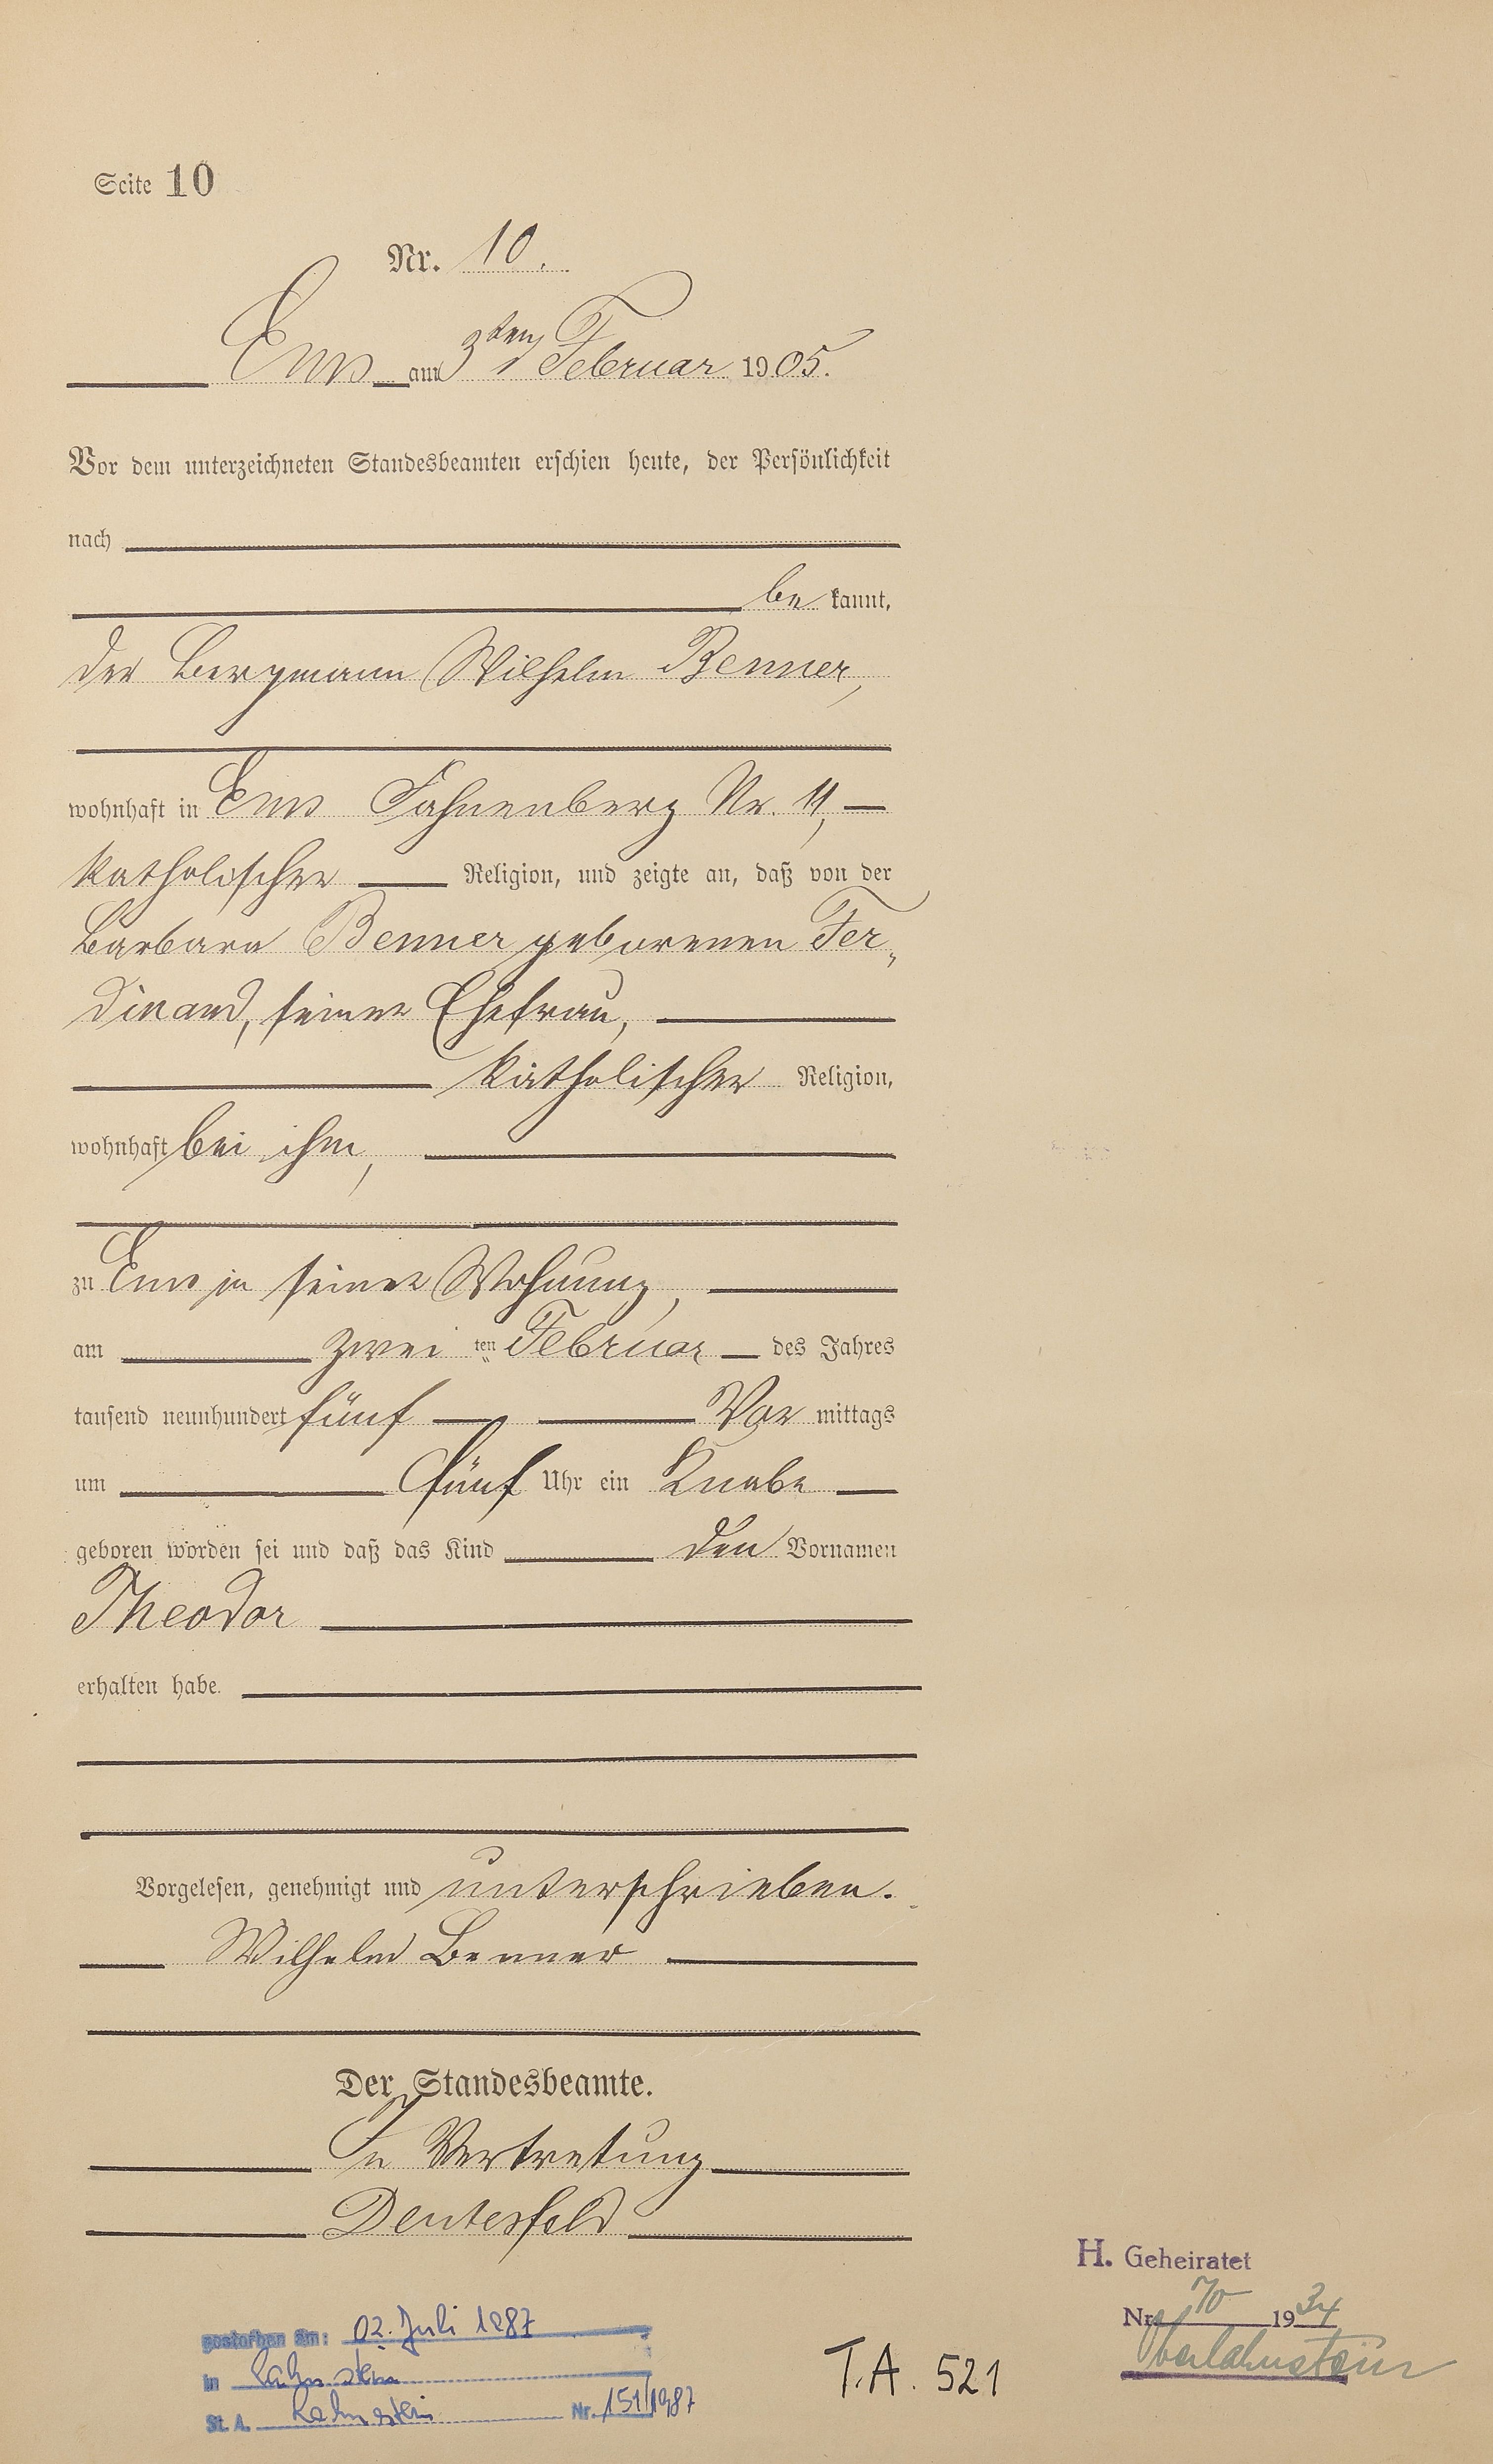 Seite 10
Nr. 10.
Ems am 3ten Februar 1905.
Vor dem unterzeichneten Standesbeamten erschien heute, der Persönlichkeit
nach
be kannt,
der Bergmann Wilhelm Benner,
wohnhaft in Ems Fahnenberg Nr. 11,
katholischer Religion, und zeigte an, daß von der
Barbara Benner geborenen Fer„
dinand, seiner Ehefrau,
katholischer Religion,
wohnhaft bei ihm,
zu Ems in seiner Wohnung,
am zwei ten Februar des Jahres
tausend neunhundert fünf Vor mittags
um fünf Uhr ein Knabe
geboren worden sei und daß das Kind den Vornamen
Theodor
erhalten habe.
Vorgelesen, genehmigt und unterschrieben.
Wilhelm Benner
Der Standesbeamte.
In Vertretung
Deutesfeld
H. Geheiratet
Nr. 70 1934
Oberlahnstein
gestorben am: 02. Juli 1987
in Lahnstein
St. A. Lahnstein Nr. 151/1987
T.A. 521